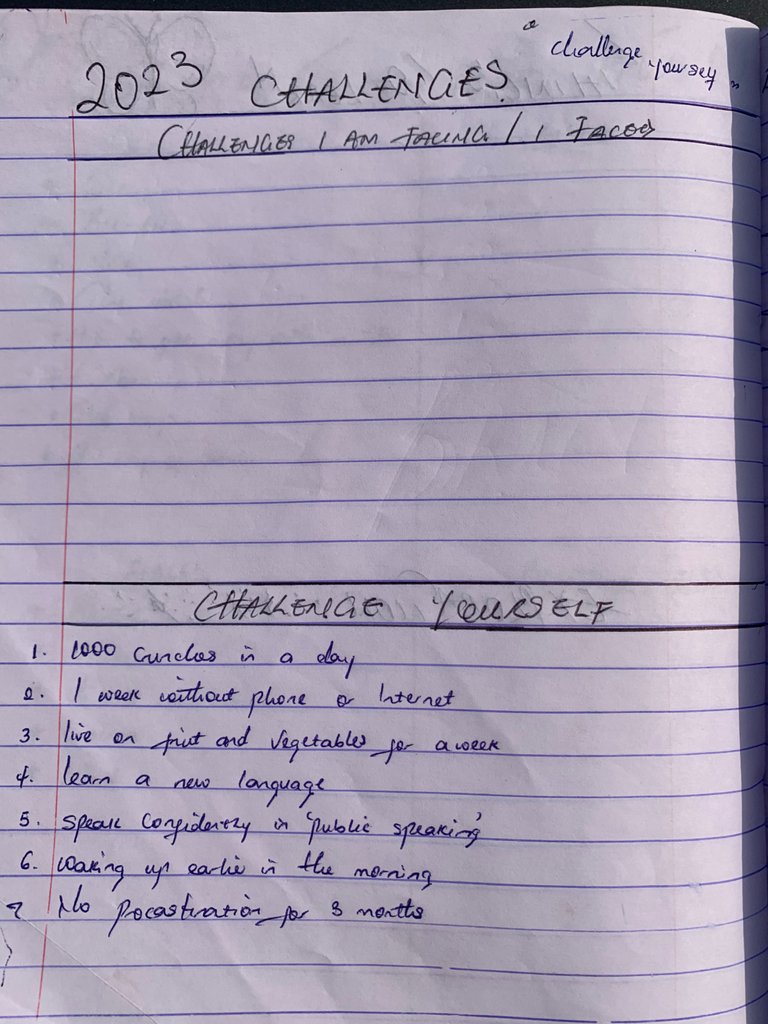 " challenge yourself "
2023 CHALLENGES
CHALLENGES I AM FACING / I FACED
CHALLENGE YOURSELF
1. 1000 Crunches in a day
2. 1 week without phone or Internet
3. live on fruit and vegetables for a week
4. learn a new language
5. speak confidently in 'public speaking'
6. waking up earlie in the morning
7 No Procastination for 3 months